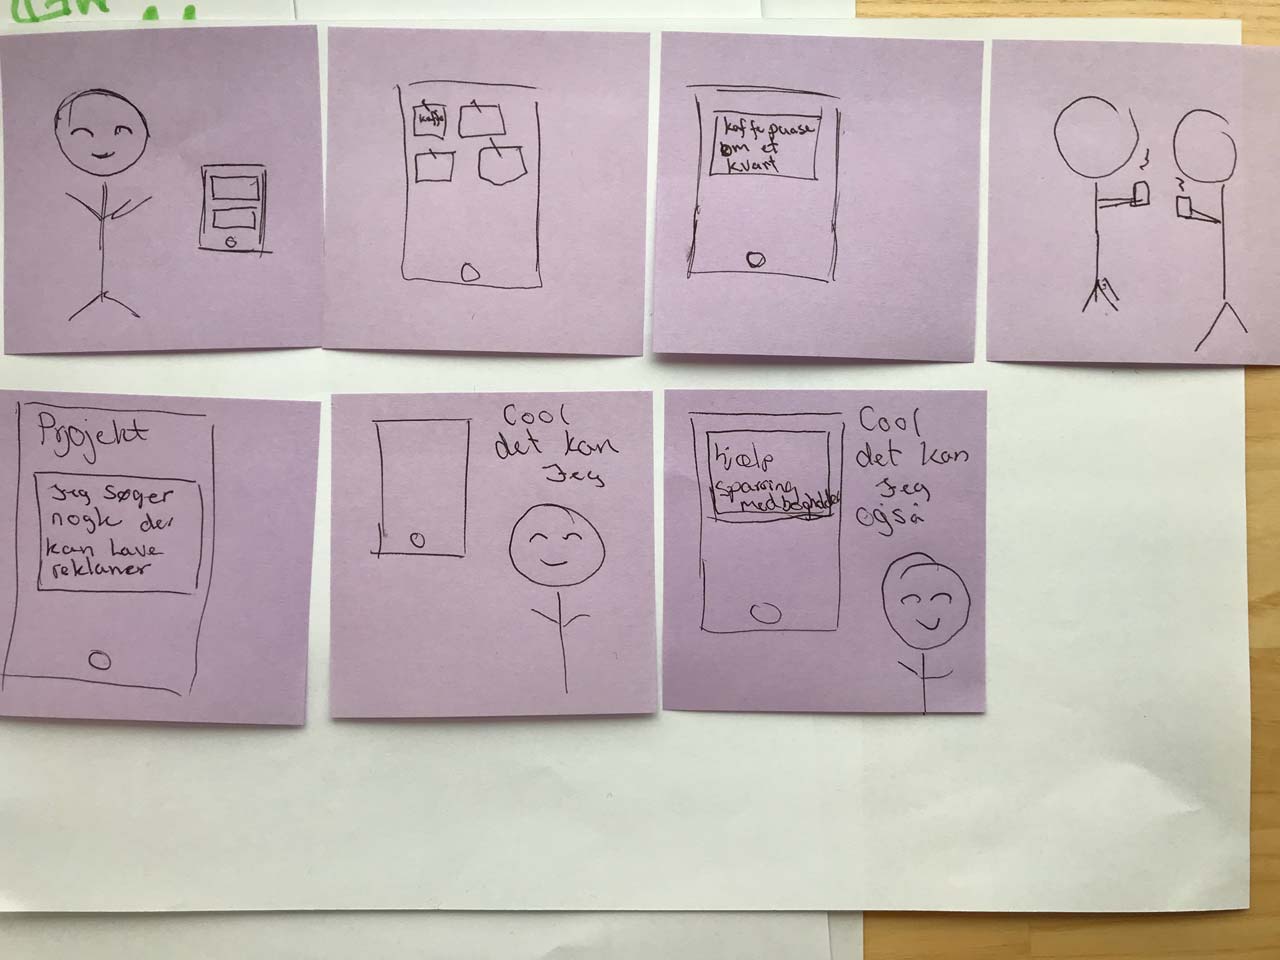 kaffe
kaffe pause
om et
kvart
Projekt
Jeg søger
nogle der
kan lave
reklamer
Cool
det kan
Jeg
hjælp
sparring
med boghold
Cool
det kan
Jeg
også